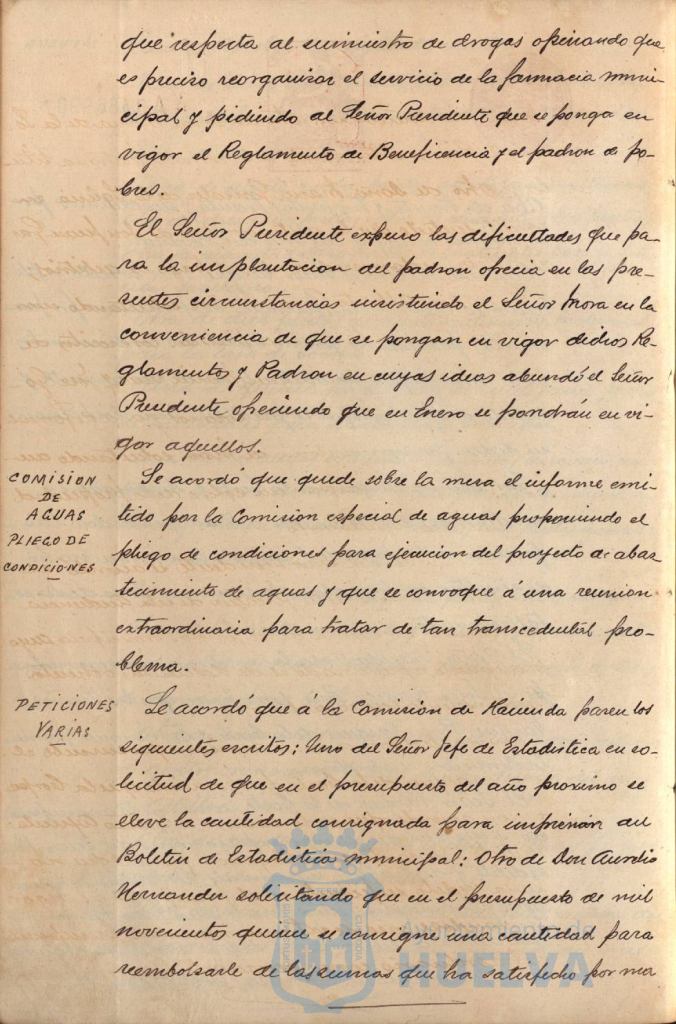 que respecta al suministro de drogas opinando que
es preciso reorganizar el servicio de la farmacia muni-
cipal y pidiendo al Señor Presidente que se ponga en
vigor el Reglamento de Beneficencia y el padron de po-
bres.
El Señor Presidente expuso las dificultades que pa-
ra la implantacion del padron ofrecia en las pre-
sentes circunstancias insistiendo el Señor Mora en la
conveniencia de que se pongan en vigor dichos Re-
glamentos y Padron en cuyas ideas abundó el Señor
Presidente ofreciendo que en Enero se pondrán en vi-
gor aquellos.
COMISION
DE
AGUAS
PLIEGO DE
CONDICIONES
Se acordó que quede sobre la mesa el informe emi-
tido por la Comision especial de aguas proponiendo el
pliego de condiciones para ejecucion del proyecto de abas-
tecimiento de aguas y que se convoque á una reunion
extraordinaria para tratar de tan transcedental pro-
blema.
PETICIONES
VARIAS
Se acordó que á la Comision de Hacienda pasen los
siguientes escritos: Uno del Señor Jefe de Estadistica en so-
licitud de que en el presupuesto del año proximo se
eleve la cantidad consignada para impresión del
Boletin de Estadistica municipal: Otro de Don Aurelio
Hernandez solicitando que en el presupuesto de mil
novecientos quince se consigne una cantidad para
reembolsarle de las sumas que ha satisfecho por ma
HUELVA